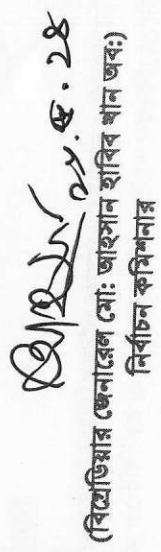 ২৮.৫.২৪
(বিগ্রেডিয়ার জেনারেল মো: আহসান হাবিব খান অব:)
নির্বাচন কমিশনার